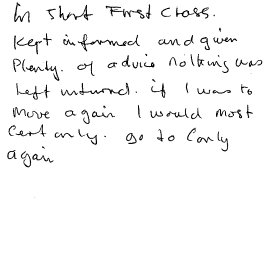 In short First Cross.
Kept informed and given
Plenty. of advice nothing was
Left unturned. if I was to
move again I would most
Certanly. go to Conly
again